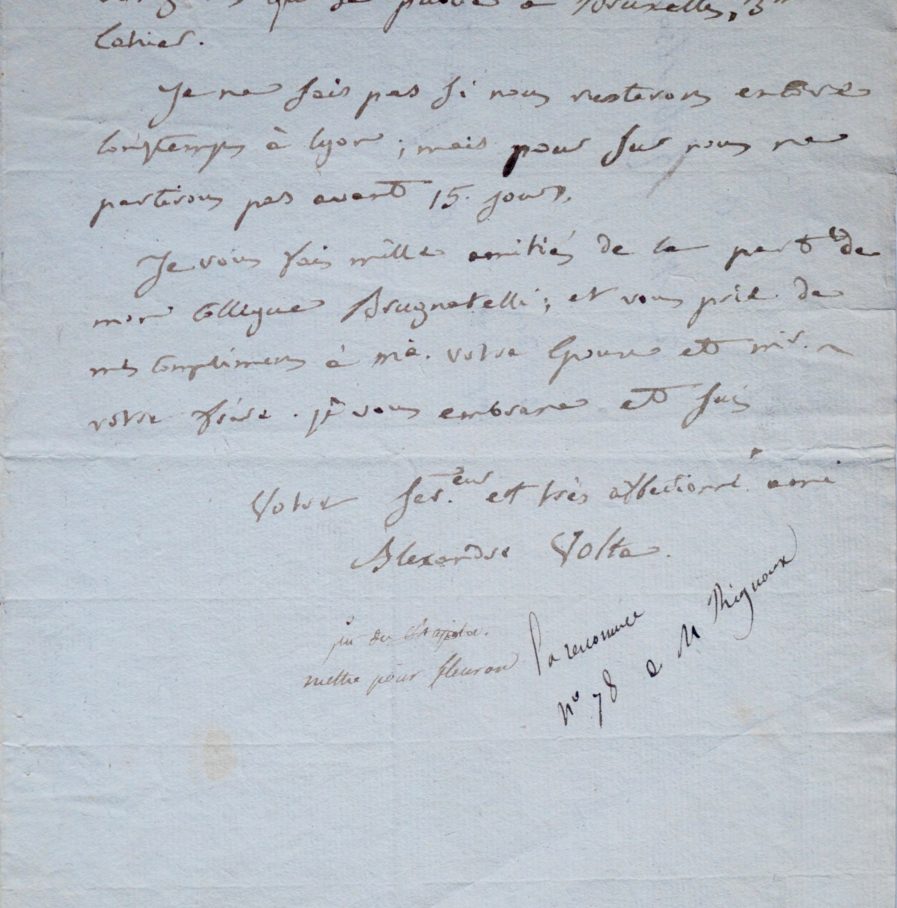 qui se publie à Bruxelles, 3me
Cahier.
Je ne sais pas si nous resterons encore
longtemps à Lyon ; mais pour sur nous ne
partirons pas avant 15. jours.
Je vous fais mille amitiés de la part de
mon Collegue Brugnatelli ; et vous prie de
mes complimens à me. votre Epouse et mr.
votre frère. je vous embrasse et suis
Votre ser.eur et très affectionné ami
Alexandre Volta.
fin du Chapitre.
mettre pour fleuron la renommée
No 78 a M Rignoux